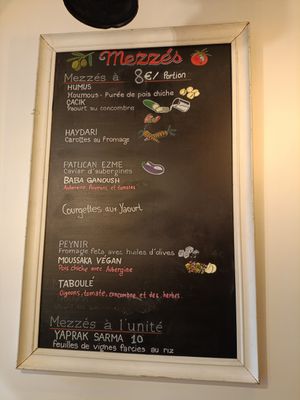 Mezzés
Mezzés à 8€/ Portion
HUMUS
Houmous - Purée de pois chiche
CACIK
Yaourt au concombre
HAYDARI
Carottes au Fromage
PATLICAN EZME
Caviar d'aubergines
BABA GANOUSH
Aubergine, Poivrons et tomates
Courgettes aux Yaourt
PEYNIR
Fromage feta avec huiles d'olives
MOUSSAKA VÉGAN
Pois chiche avec Aubergine
TABOULÉ
Oignons, tomate, concombre et des herbes.
Mezzés à l'unité
YAPRAK SARMA 10
Feuilles de vignes farcies au riz